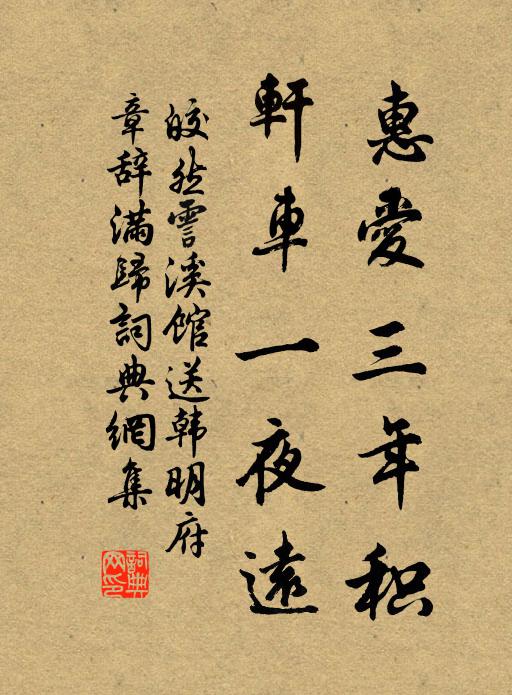 惠愛三年积
軒車一夜遠
皎然雲溪館送韩明府
章辞满歸詞典網集
詞典网印